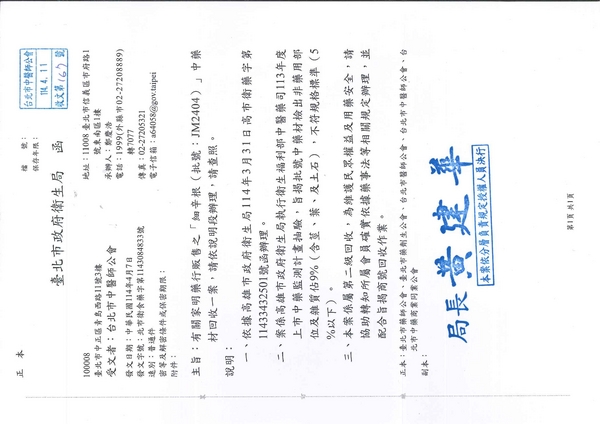 正本
檔　號：
保存年限：
台北市中醫師公會
114. 4. 11
收文第167號
臺北市政府衛生局　函
地址：11008 臺北市信義區市府路1
號東南區1樓
承辦人：鄭慶浩
電話：1999(外縣市02-27208889)
轉7077
傳真：02-27205321
電子信箱：a64058@gov.taipei
100008
臺北市中正區青島西路11號3樓
受文者：台北市中醫師公會
發文日期：中華民國114年4月7日
發文字號：北市衛食藥字第1143084833號
速別：普通件
密等及解密條件或保密期限：
附件：
主旨：有關家明藥行販售之「細辛根（批號：JM2404）」中藥
材回收一案，請依說明段辦理，請查照。
說明：
一、依據高雄市政府衛生局114年3月31日高市衛藥字第
11433432501號函辦理。
二、案係高雄市政府衛生局執行衛生福利部中醫藥司113年度
上市中藥監測計畫抽驗，旨揭批號中藥材檢出非藥用部
位及雜質佔9%（含莖、葉、及土石），不符規格標準（5
%以下）。
三、本案係屬第二級回收，為維護民眾權益及用藥安全，請
協助轉知所屬會員確實依據藥事法等相關規定辦理，並
配合旨揭商號回收作業。
正本：臺北市藥師公會、臺北市藥劑生公會、台北市中醫師公會、台
北市中藥商業同業公會
副本：
局長 黃建華
本案依分層負責規定授權人員決行
第1頁 共1頁